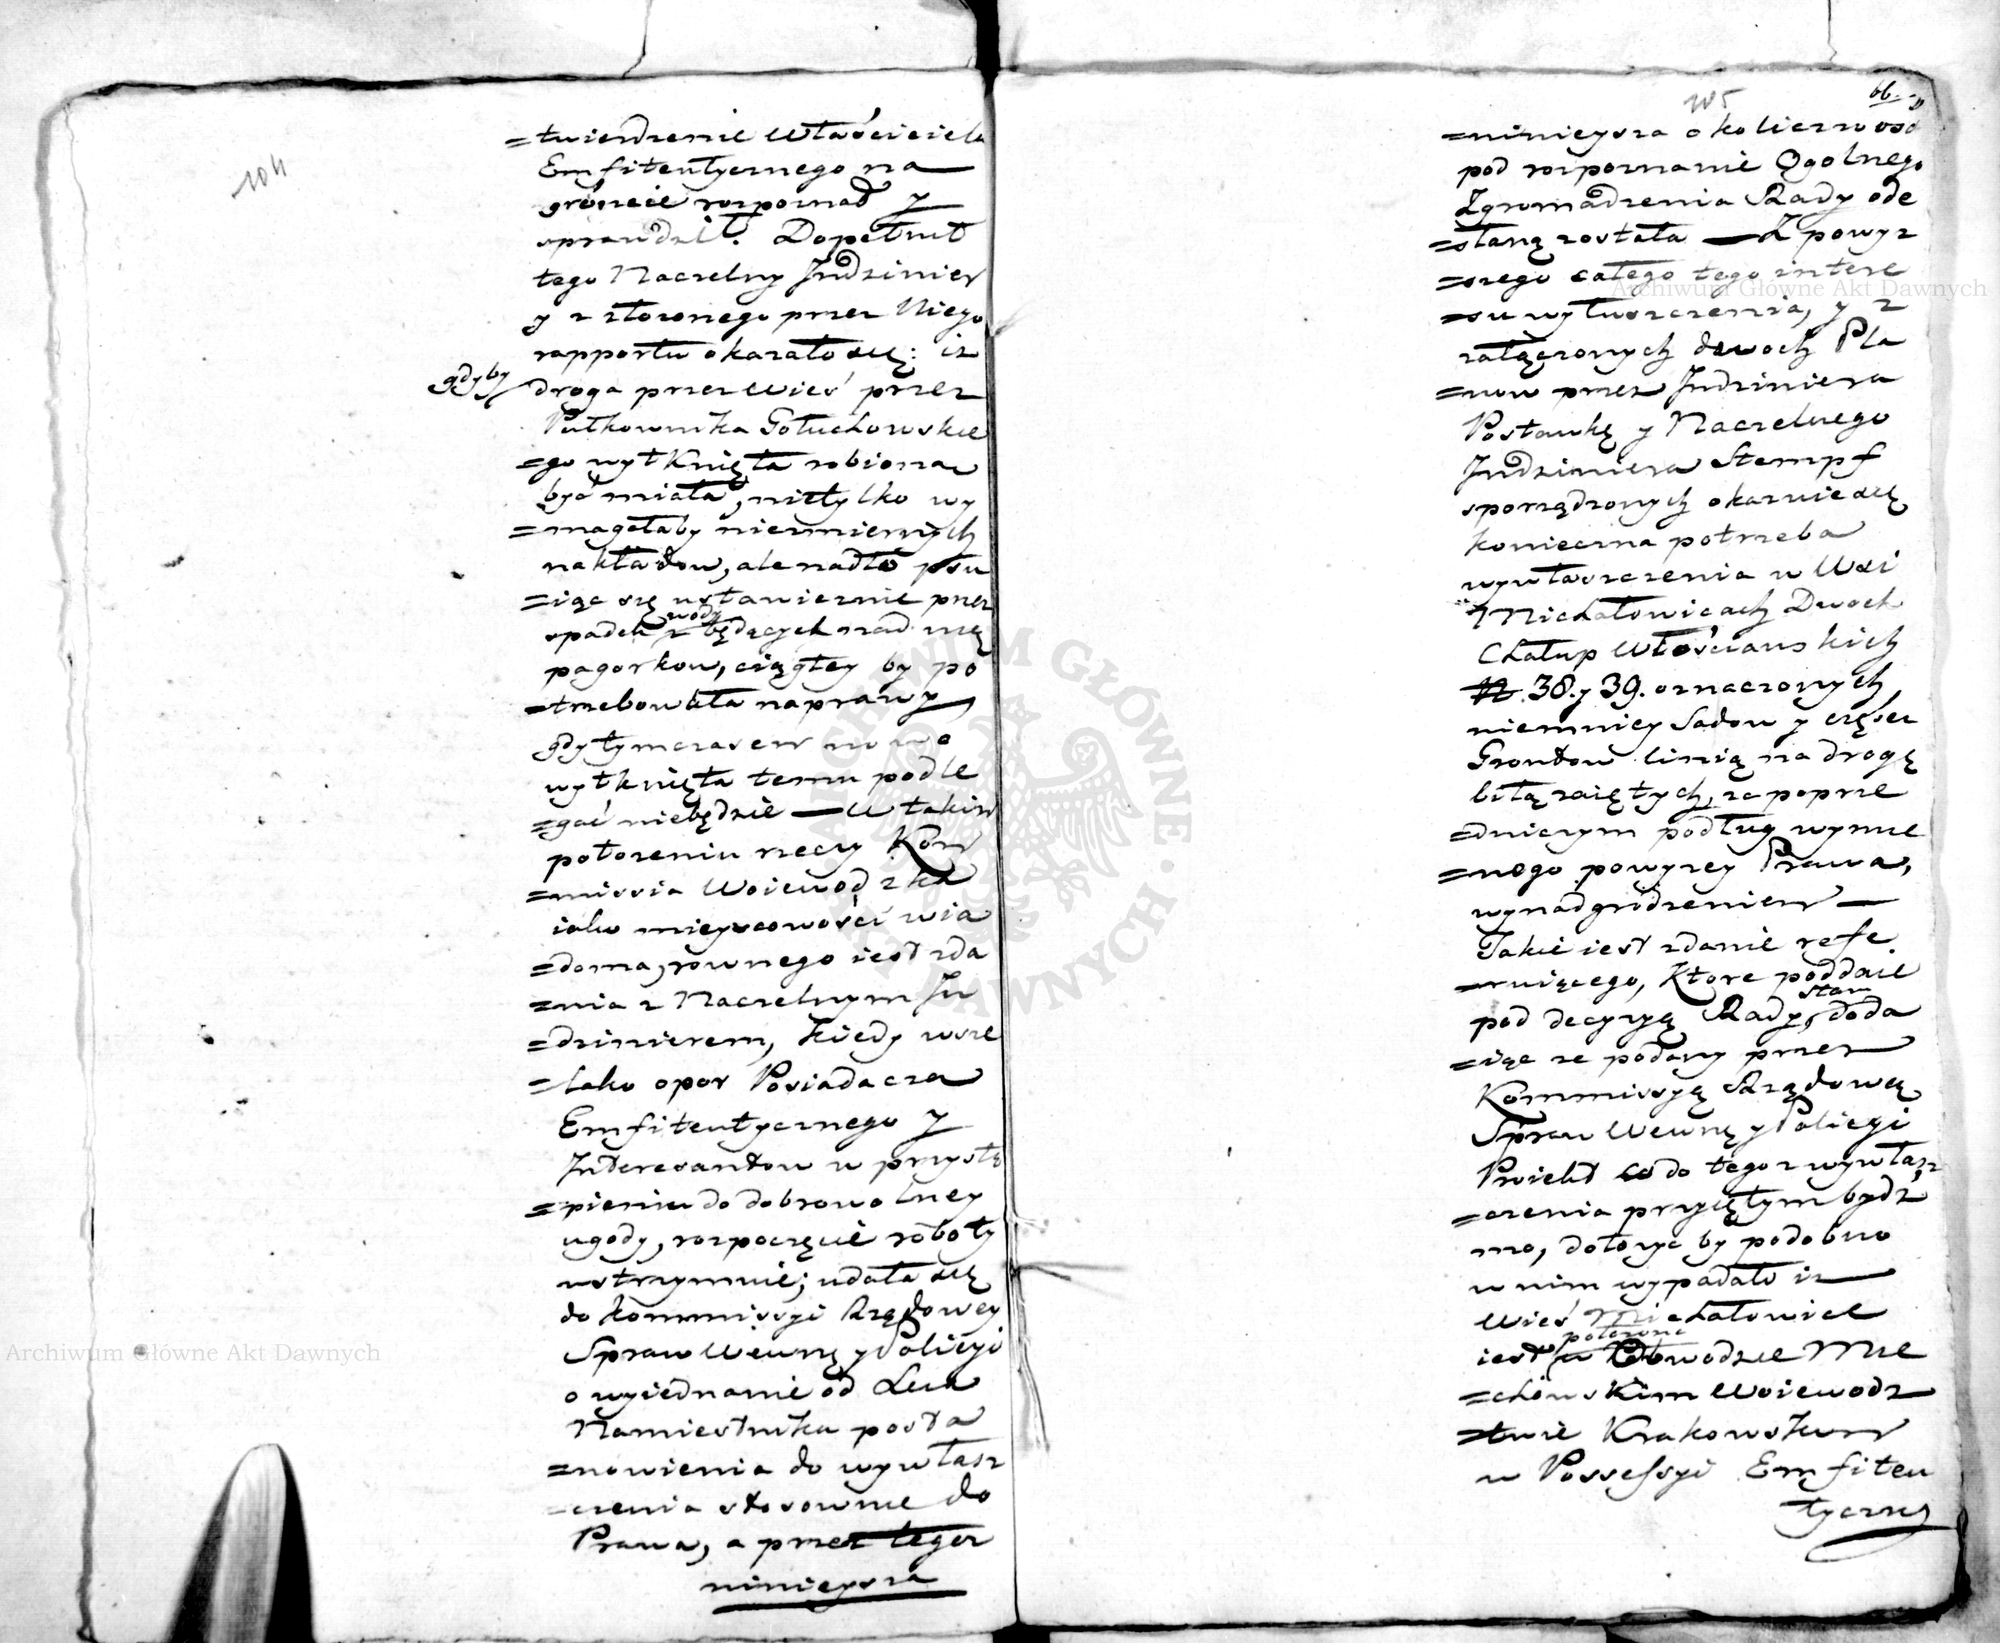 104
=twierdzenie Właściciela
Emfiteutycznego na
gróncie rozpoznał y
sprawdził. Dopełnił
tego Naczelny Jndzinier
y z złozonego przez Niego
rapportu okazało się: iz
gdyby droga przez Wieś przez
Pułkownika Gołuchowskie
=go wytknięta robiona
być miała, nietylko wy
=magałaby niezmiernych
nakładow, ale nadto psu
=iąc się ustawicznie przez
spadek wody z będących nad nią
pagorkow, ciągłey by po
=trzebowała naprawy,
gdy tymczasem nowo
wytknięta temu podle
=gać niebędzie — W takim
położeniu rzeczy Kom
=missia Woiewodzka
iako mieyscowości wia
=doma, rownego iest zda
=nia z Naczelnym Jn
=dzinierem, kiedy wsze
=lako opor Posiadacza
Emfiteutycznego y
Interesantow w przystą
=pieniu do dobrowolney
ugody, rozpoczęcie roboty
wstrzymuie; udała się
do kommissyi Rządowey
Spraw Wewnę y Policyi
o wyiednanie od Xcia
Namiestnika posta
=nowienia do wywłasz
=czenia stosownie do
Prawa, a przez tegoz
ninieysza
105
66.
=ninieysza okoliczność
pod rozpoznanie Ogolnego
Zgromadzenia Rady ode
=słaną została — Z powyz
=szego całego tego intere
=su wyłuszczenia, y z
załączonych dwoch Pla
=now przez Jndziniera
Postawkę y Naczelnego
Jndziniera Stempf
sporządzonych okazuie się
konieczna potrzeba
wywłaszczenia w Wsi
Michałowicach Dwoch
Chałup Włościanskich
N. 38. y 39. oznaczonych,
niemniey Sadow y części
Grontow linią na drogę
bitą zaiętych, za poprze
=dniczym podług wymie
=nego powyzey Prawa,
wynadgrodzeniem —
Takie iest zdanie refe
=ruiącego, ktore poddaie
pod decyzyą Rady Stanu, doda
=iąc ze podany przez
Kommissyę Rządową
Spraw Wewnę y Policyi
Proiekt co do tegoz wywłasz
=czenia przyiętym bydź
mo, dołozyc by podobno
w nim wypadało iz
Wieś Michałowice
iest położona w Obwodzie Mie
=chowskim Woiewodz
=twie Krakowskim
w Possessyi Emfiteu
tyczney
Archiwum Główne Akt Dawnych
Archiwum Główne Akt Dawnych
ARCHIWUM GŁÓWNE AKT DAWNYCH